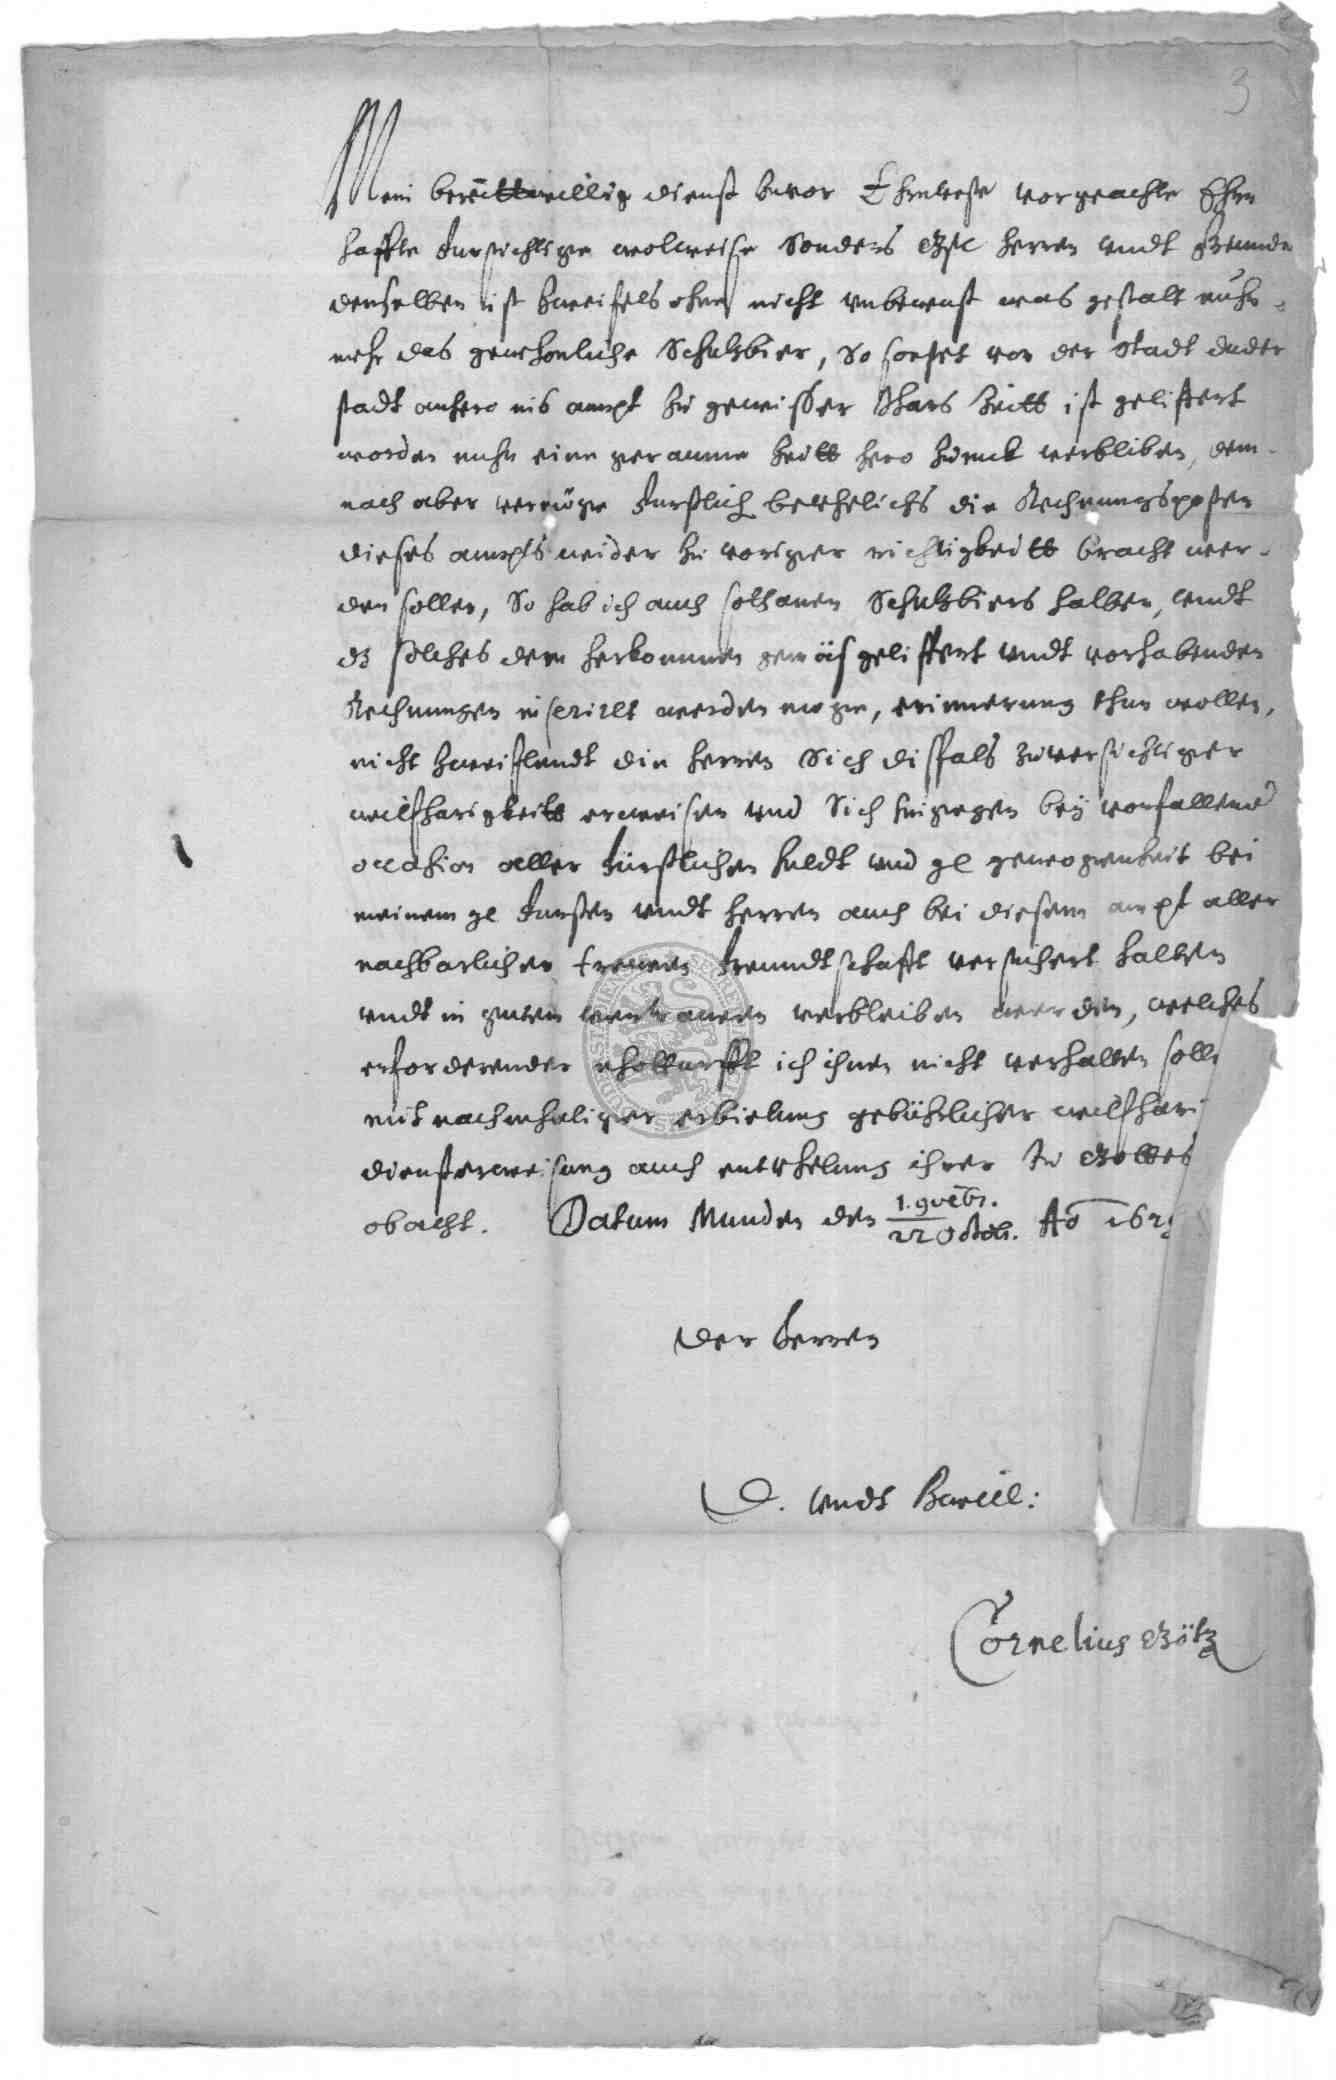 3
Mein bereittwillig dienst zuvor Ehrnveste vorgeachte Ehrn
haffte fursichtige wolweise Sonders Gste herren undt freunde
denselben ist zweifels ohne nicht unbewust was gestalt nuhn-
mehr das gewhonliche Schultzbier, So sonset von der Stadt duder
stadt anhero ins ampt zu gewisser Jhars Zeitt ist gelifert
worden nuhn eine geraume Zeitt hero zuruck verbliben, dem-
nach aber vermöge furstlich bevhelichs die Rechnungsposten
dieses ampts wider zu voriger richtigkeitt bracht wer-
den sollen, So hab ich auch solthanen Schultzbiers halben, undt
dz solches dem herkommen gemäs geliffert undt vorhabenden
Rechnungen inserirtt werden moge, erinnerung thun wollen,
nicht zweiflendt die herren Sich disfals zuversichtiger
wilfharigkeitt erweisen und Sich hingegen bey vorfallend
occasion aller fürstlichen huldt und gl gewogenheit bei
meinem gl fursten undt herren auch bei diesem ampt aller
nachbarlichen treuen freundtschafft versichert halten
undt in gutem vertrauen verbleiben werden, welches
erforderender nhotturfft ich ihnen nicht verhalten solle
mit nachmhaliger erbietung gebührlicher wilfhari
dinsterweisung auch entphelung ihrer in Gottes
obacht. Datum Munden den 1. 9vebr. / 22 Octob. Ao 162
der herren
D. undt Bwill:
Cornelius Götz